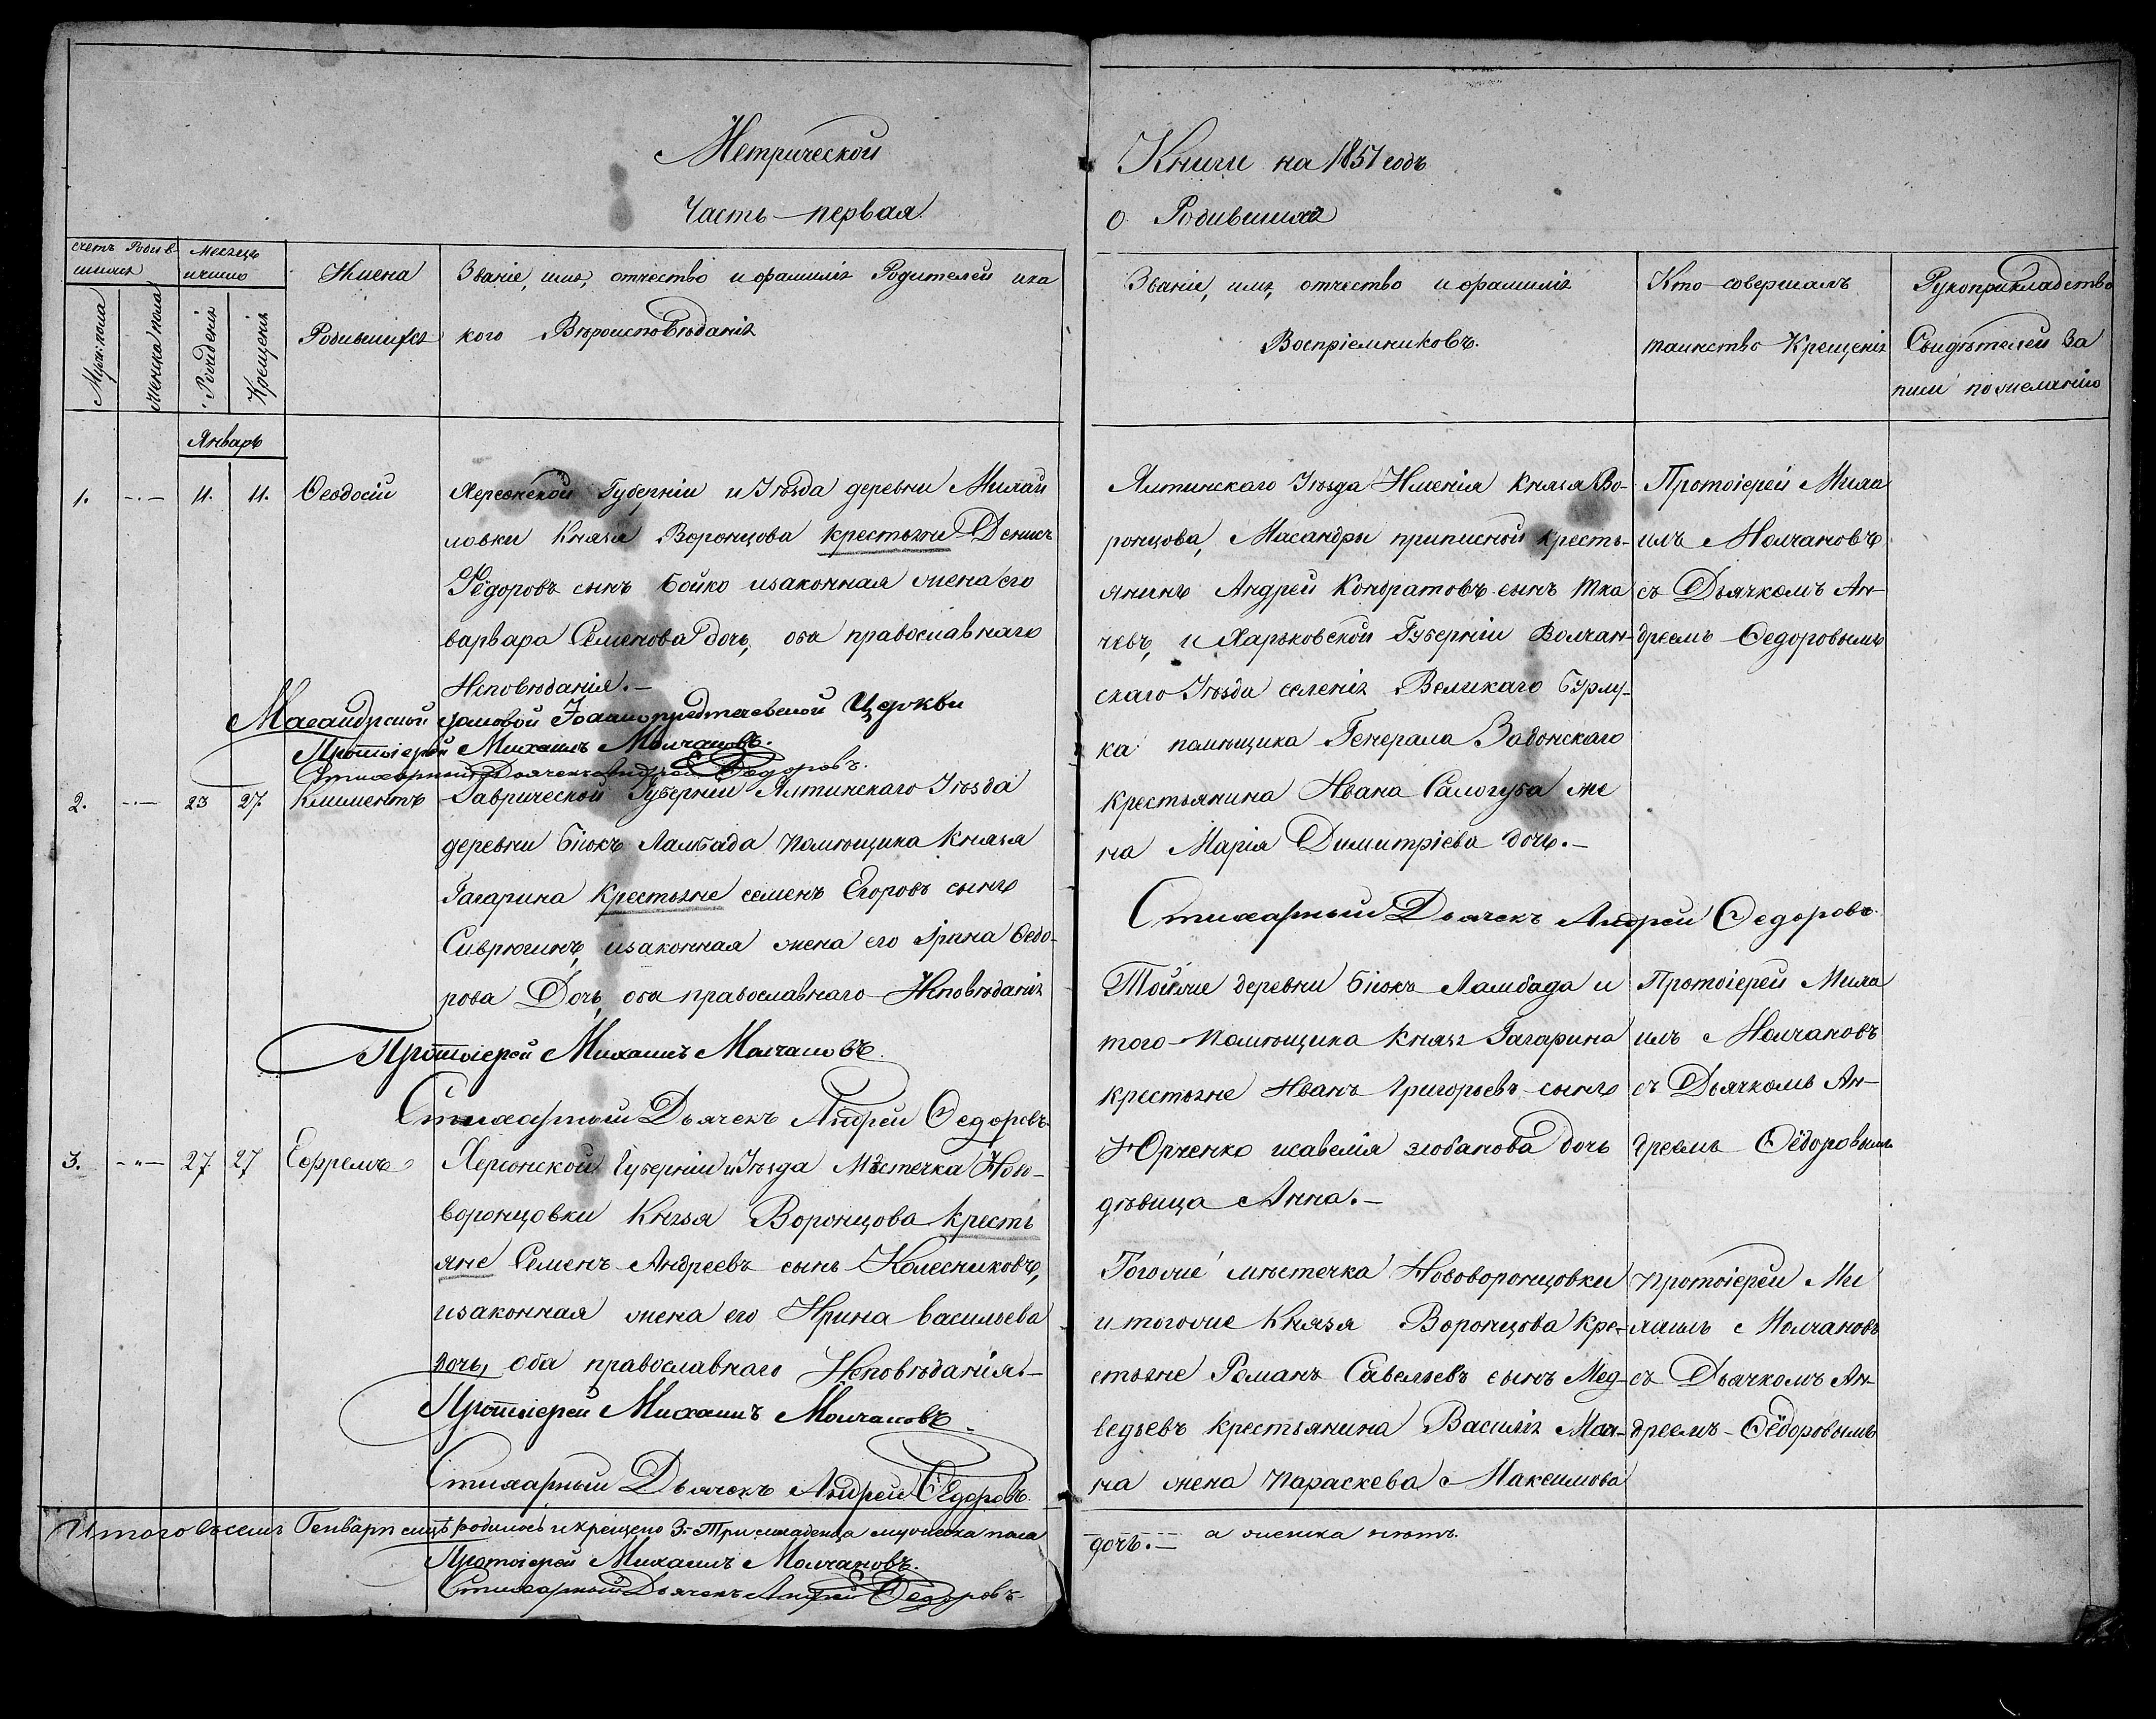 Метрической
Часть первая
счетъ Родив-
шихся
Месяцъ
и число
Муж: пола
Женска пола
Рожденія
Крещенія
Имена
Родившихся
Званіе, имя, отчество и фамилія Родителей и ка
кого Вѣроисповѣданія
Январь
1.
11.
11.
Ѳеодосій
Херсонской Губерніи и Уѣзда деревни Михай
ловки Князя Воронцова крестьяни Денисъ
Ѳёдоровъ сынъ Бойко изаконная жена его
варвара Семенова дочь, оба православнаго
Исповѣданія.—
Масандрской домовой Іоаннопредтечевской Церкви
Протоіерей Михаилъ Молчановъ.
Стихарный Дьячекъ Андрей Ѳедоровъ.
2.
23
27
Климентъ
Таврической Губерніи Ялтинскаго Уѣзда
деревни Біюкъ Ламбада Помѣщика Князя
Гагарина Крестьяне семенъ Егоровъ сынъ
Сиврюгинъ, изаконная жена его Ірина Ѳедо-
рова Дочь, оба православнаго Исповѣданія
Протоіерей Михаилъ Молчановъ.
Стихарный Дьячекъ Андрей Ѳедоровъ.
3.
27
27
Ефремъ
Херсонской Губерніи и Уѣзда Мѣстечка Ново-
воронцовки Князя Воронцова кресть
яне Семенъ Андреевъ сынъ Колесниковъ,
изаконная жена его Ирина Васильева
дочь, Оба православнаго Исповѣданія.—
Протоіерей Михаилъ Молчановъ.
Стихарный Дьячекъ Андрей Ѳедоровъ.
Итого всемъ Генварѣ мцѣ родилось и крещено 3. Три младенца мужеска пола
Протоіерей Михаилъ Молчановъ.
Стихарный Дьячекъ Андрей Ѳедоровъ.
Книги на 1851 годъ
о Родившихся
Званіе, имя, отчество и фамилія
Воспріемниковъ.
Кто совершалъ
таинство Крещенія
Рукоприкладство
Свидѣтелей За
писи по желанію
Ялтинскаго Уѣзда Имѣнія Князя Во-
ронцова, Масандры приписной кресть-
янинъ Андрей Кондратовъ сынъ Тка
чевъ, и Харьковской Губерніи Волчан-
скаго Уѣзда селенія Великаго Бурлу-
ка помѣщика Генерала Задонскаго
крестьянина Ивана Салогуба же
на Марія Димитріева дочь.—
Протоіерей Миха
илъ Молчановъ
съ Дьячкомъ Ан-
дреемъ Ѳедоровымъ
Стихарный Дьячекъ Андрей Ѳедоровъ.
Тойже деревни Біюкъ Ламбада и
того Помѣщика Князя Гагарина
крестьяне Иванъ Григорьевъ сынъ
Юрченко исавелія злобанова дочь
дѣвица Анна.—
Протоіерей Миха
илъ Молчановъ
съ Дьячкомъ Ан-
дреемъ Ѳёдоровымъ
Тогоже мѣстечка Нововоронцовки
и тогоже Князя Воронцова Кре-
стьяне Романъ Савельевъ сынъ Мед-
ведьевъ крестьянина Василія
на жена Параскева Максимова
дочь.—
Протоіерей Ми
хаилъ Молчановъ
съ Дьячкомъ Ан-
дреемъ Ѳёдоровымъ
а женска нѣтъ.